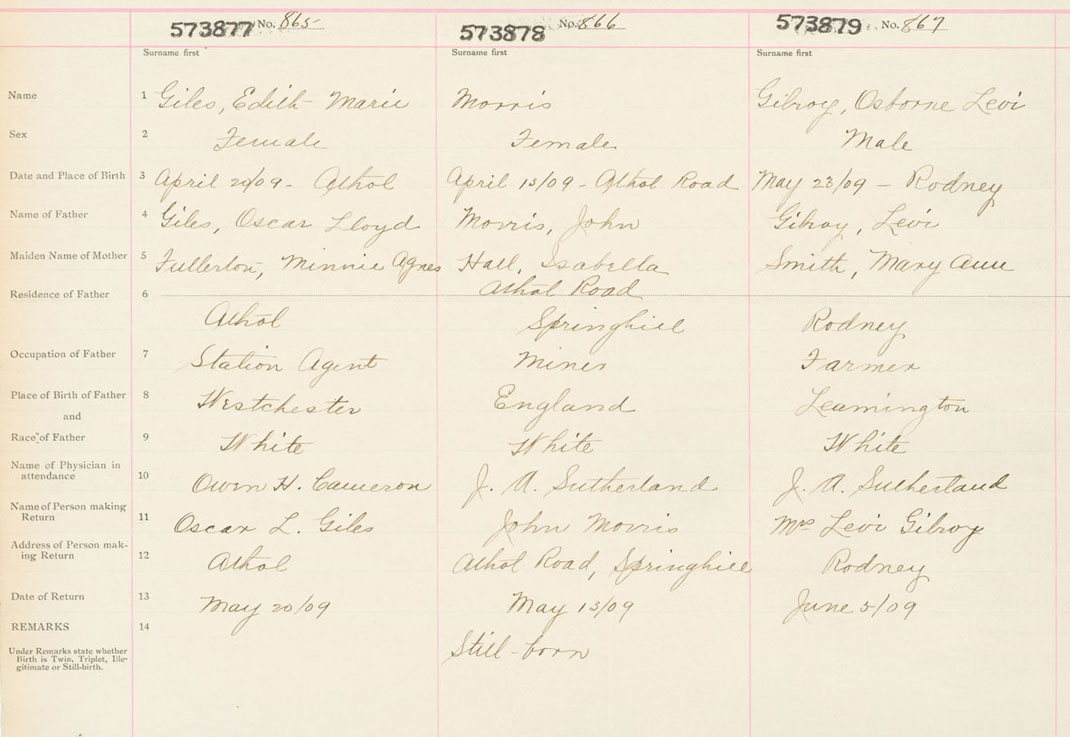 573877 No. 865 573878 No. 866 573879 No. 867
Surname first Surname first Surname first
Name 1 Giles, Edith Marie Morris Gilroy, Osborne Levi
Sex 2 Female Female Male
Date and Place of Birth 3 April 20/09 - Athol April 13/09 - Athol Road May 23/09 - Rodney
Name of Father 4 Giles, Oscar Lloyd Morris, John Gilroy, Levi
Maiden Name of Mother 5 Fullerton, Minnie Agnes Hall, Isabella Smith, Mary Ann
Residence of Father 6 Athol Road
Athol Springhill Rodney
Occupation of Father 7 Station Agent Miner Farmer
Place of Birth of Father 8 Westchester England Leamington
and
Race of Father 9 White White White
Name of Physician in
attendance 10 Owen H. Cameron J. A. Sutherland J. A. Sutherland
Name of Person making
Return 11 Oscar L. Giles John Morris Mrs Levi Gilroy
Address of Person mak-
ing Return 12 Athol Athol Road, Springhill Rodney
Date of Return 13 May 20/09 May 13/09 June 5/09
REMARKS 14
Under Remarks state whether
Birth is Twin, Triplet, Ille-
gitimate or Still-birth.
Still-born